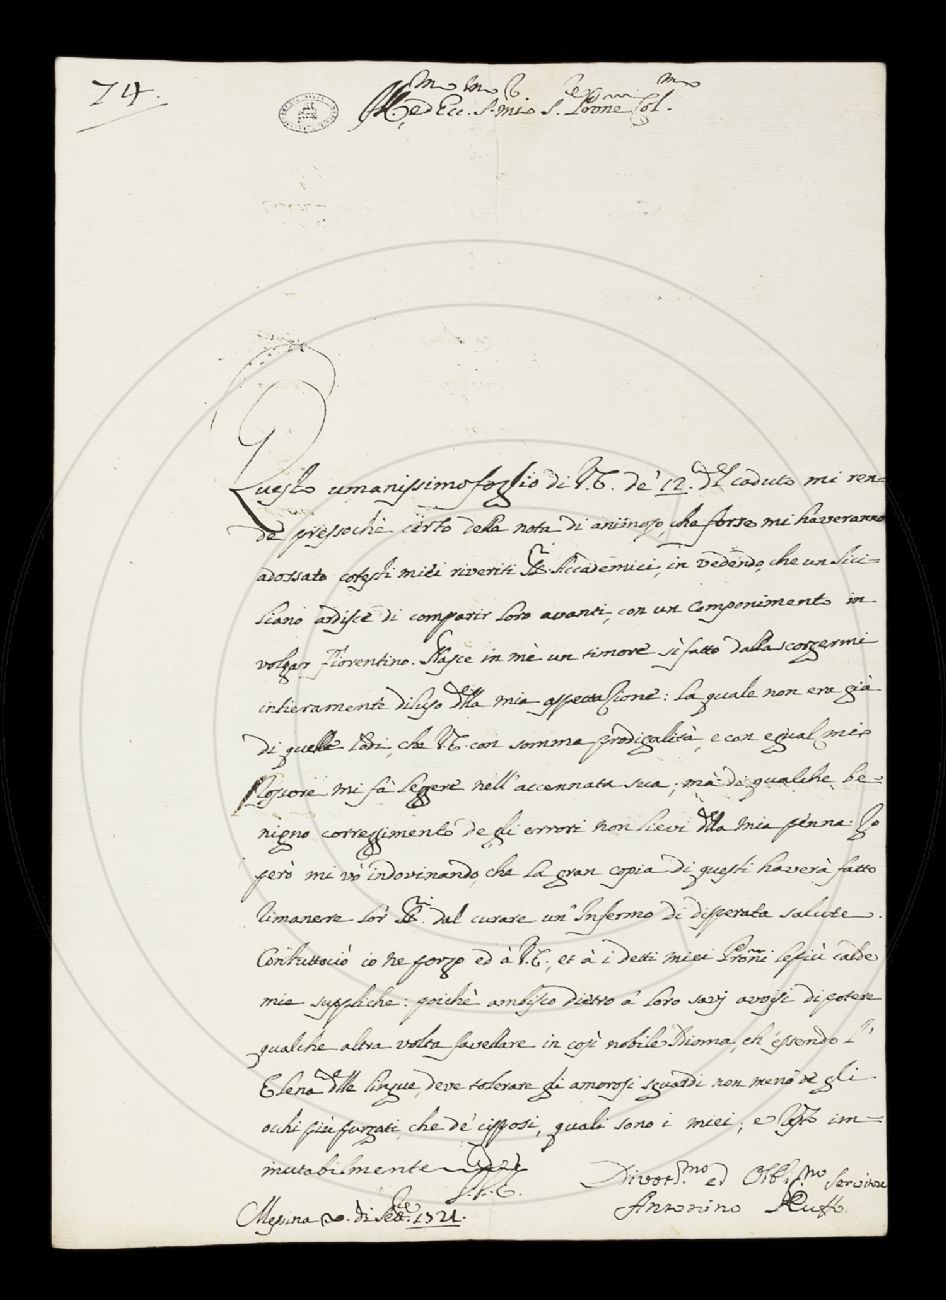 74.
Ill.mo ed Ecc. S. mio S. e Prone Col.mo
Questo umanissimo foglio di V.E. de' 12. del caduto mi ren=
de pressochè certo della nota di animoso, che forse mi haveranno
adossato cotesti miei riveriti SS.ri Accademici, in vedendo, che un Sici=
liano ardisce di comparir loro avanti, con un componimento in
volgar Fiorentino. Nasce in mè un timore sì fatto dalla scorgermi
intieramente deluso della mia aspettazione: la quale non era già
di quelle lodi, che V.E. con somma prodigalità, e con egual mio
rossore mi fà leggere nell'accennata sua; mà di qualche be=
nigno correggimento de gli errori non lievi della mia penna. Io
però mi vò indovinando, che la gran copia di questi haverà fatto
rimanere lor SS.ri dal curare un'Infermo di disperata salute.
Contuttociò io ne porgo ed à V.E., et à i detti miei Proni le più calde
mie suppliche: poichè ambisco dietro a' loro savj avvisi di potere
qualche altra volta favellare in così nobile Idioma, ch'essendo l'
Elena delle lingue, deve tolerare gli amorosi sguardi non meno de gli
ochi più purgati, che de' cisposi, quali sono i miei; e resto im=
mutabilmente
D. V.E.
Messina 2. di Sett.e 1721.
Divot.mo ed Obbl.mo Servitore
Antonino Ruffo